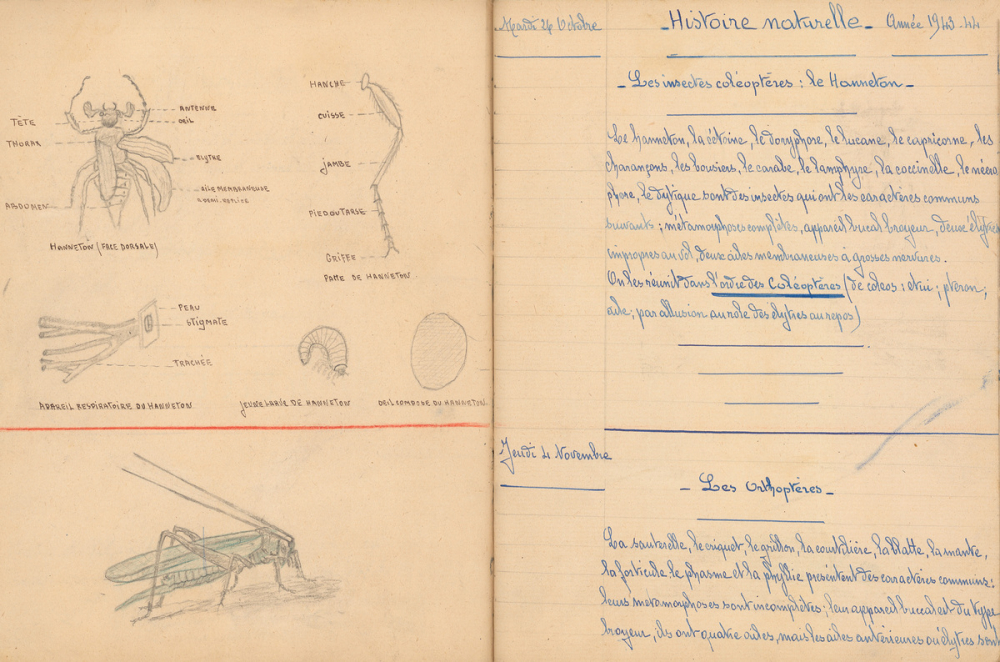 TÊTE
THORAX
ABDOMEN
ANTENNE
ŒIL
ELYTRE
AILE MEMBRANEUSE
HANNETON (FACE DORSALE)
HANCHE
CUISSE
JAMBE
PIED OU TARSE
GRIFFE
PATTE DE HANNETON
PEAU
STIGMATE
TRACHÉE
APAREIL RESPIRATOIRE DU HANNETON
JEUNE LARVE DE HANNETON
OEIL COMPOSE DU HANNETON
Mardi 26 Octobre
- Histoire naturelle - Année 1943-44
- Les insectes coléoptères : le Hanneton -
Le hanneton, la cétoine, le doryphore, le lucane, le capricorne, les
charançons, les bousiers, le carabe, le lamphyre, la coccinelle, le nécro
phore, le dytique sont des insectes qui ont les caractères communs
suivants ; métamorphoses complètes, appareil bucal broyeur, deux élytres
impropres au vol, deux ailes membraneuses à grosses nervures.
On les réunit dans l'ordre des Coléoptères (de coleos : étui ; ptéron ;
aile ; par allusion au role des élytres au repos)
Jeudi 4 Novembre
- Les Orthoptères -
La sauterelle, le criquet, le grillon, la courtilière, la blatte, la mante,
la forficule le phasme et la phyllie présentent des caractères communs :
leurs métamorphoses sont incomplètes ; leur appareil buccal est du type
broyeur, ils ont quatre ailes, mais les ailes antérieures ou élytres sont